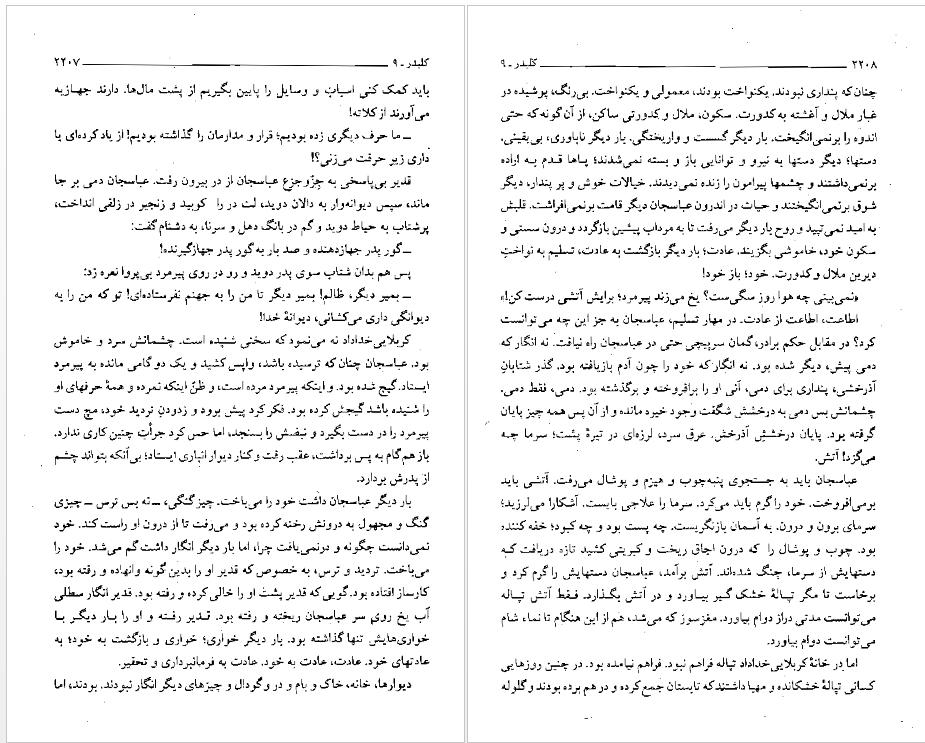 کلیدر ـ ۹ ۲۲۰۷
باید کمک کنی اسباب و وسایل را پایین بگیریم از پشت مال‌ها. دارند جهازیه
می‌آورند از کلاته!
ــ ما حرف دیگری زده بودیم؛ قرار و مدارمان را گذاشته بودیم! از یاد کرده‌ای یا
داری زیر حرفت می‌زنی؟!
قدیر بی‌پاسخی به جِزّ و جزع عباسجان از در بیرون رفت. عباسجان دمی بر جا
ماند، سپس دیوانه‌وار به دالان دوید، لت در را کوبید و زنجیر در زلفی انداخت،
پرشتاب به حیاط دوید و گم در بانگ دهل و سرنا، به دشنام گفت:
ــ گور پدر جهازدهنده و صد بار به گور پدر جهازگیرنده!
پس هم بدان شتاب سوی پدر دوید و رو در روی پیرمرد بی‌پروا نعره زد:
ــ بمیر دیگر، ظالم! بمیر دیگر تا من را به جهنم نفرستاده‌ای! تو که من را به
دیوانگی داری می‌کشانی، دیوانهٔ خدا!
کربلایی‌خداداد نه می‌نمود که سخنی شنیده است. چشمانش سرد و خاموش
بود. عباسجان چنان که ترسیده باشد، واپس کشید و یک دو گامی مانده به پیرمرد
ایستاد. گیج شده بود. و اینکه پیرمرد مرده است، و ظنّ اینکه نمرده و همهٔ حرفهای او
را شنیده باشد گیجش کرده بود. فکر کرد پیش برود و زدودنِ تردید خود، مچ دست
پیرمرد را در دست بگیرد و نبضش را بسنجد، اما حس کرد جرأتِ چنین کاری ندارد.
باز هم گام به پس برداشت، عقب رفت و کنار دیوار انباری ایستاد؛ بی‌آنکه بتواند چشم
از پدرش بردارد.
بار دیگر عباسجان داشت خود را می‌باخت. چیز گنگی، ــ نه بس ترس ــ چیزی
گنگ و مجهول به درونش رخنه کرده بود و می‌رفت تا از درون او راست کند. خود
نمی‌دانست چگونه و درنمی‌یافت چرا، اما بار دیگر انگار داشت گم می‌شد. خود را
می‌باخت. تردید و ترس، به خصوص که قدیر او را بدین گونه وانهاده و رفته بود،
کارساز افتاده بود. گویی که قدیر پشت او را خالی کرده و رفته بود. قدیر انگار سطلی
آب یخ روی سر عباسجان ریخته و رفته بود. قدیر رفته و او را بار دیگر با
خواری‌هایش تنها گذاشته بود. بار دیگر خواری؛ خواری و بازگشت به خود؛ به
عادتهای خود. عادت، عادت به خود. عادت به فرمانبرداری و تحقیر.
دیوارها، خانه، خاک و بام و در و گودال و چیزهای دیگر انگار نبودند. بودند، اما
۲۲۰۸ کلیدر ـ ۹
چنان که پنداری نبودند. یکنواخت بودند، معمولی و یکنواخت. بی‌رنگ، پوشیده در
غبار ملال و آغشته به کدورت. سکون، ملال و کدورتی ساکن، از آن گونه که حتی
اندوه را برنمی‌انگیخت. بار دیگر گسست و واریختگی. بار دیگر ناباوری، بی‌یقینی.
دستها؛ دیگر دستها به نیرو و توانایی باز و بسته نمی‌شدند؛ پاها قدم به اراده
برنمی‌داشتند و چشمها پیرامون را زنده نمی‌دیدند. خیالات خوش و پر پندار، دیگر
شوق برنمی‌انگیختند و حیات در اندرون عباسجان دیگر قامت برنمی‌افراشت. قلبش
به امید نمی‌تپید و روح بار دیگر می‌رفت تا به مرداب پیشین بازگردد و درون سستی و
سکون خود، خاموشی بگزیند. عادت؛ بار دیگر بازگشت به عادت، تسلیم به نواختِ
دیرین ملال و کدورت. خود؛ باز خود!
«نمی‌بینی چه هوا روز سگی‌ست؟ یخ می‌زند پیرمرد؛ برایش آتشی درست کن!»
اطاعت، اطاعت از عادت. در مهار تسلیم، عباسجان به جز این چه می‌توانست
کرد؟ در مقابل حکم برادر، گمان سرپیچی حتی در عباسجان راه نیافت. نه انگار که
دمی پیش، دیگر شده بود. نه انگار که خود را چون آدم بازیافته بود. گذر شتابانِ
آذرخشی، پنداری برای دمی، آنی او را برافروخته و برگذشته بود. دمی، فقط دمی.
چشمانش بس دمی به درخشش شگفت وجود خیره مانده و از آن پس همه چیز پایان
گرفته بود. پایان درخششِ آذرخش. عرق سرد، لرزه‌ای در تیرهٔ پشت؛ سرما چه
می‌گزد! آتش.
عباسجان باید به جستجوی پنبه‌چوب و هیزم و پوشال می‌رفت. آتشی باید
برمی‌افروخت. خود را گرم باید می‌کرد. سرما را علاجی بایست. آشکارا می‌لرزید؛
سرمای برون و درون. به آسمان بازنگریست. چه پست بود و چه کبود؛ خفه کننده
بود. چوب و پوشال را که درون اجاق ریخت و کبریتی کشید تازه دریافت که
دستهایش از سرما، چنگ شده‌اند. آتش برآمد، عباسجان دستهایش را گرم کرد و
برخاست تا مگر تپالهٔ خشک گیر بیاورد و در آتش بگذارد. فقط آتش تپاله
می‌توانست مدتی دراز دوام بیاورد. مغزسوز که می‌شد، هم از این هنگام تا نماز شام
می‌توانست دوام بیاورد.
اما در خانهٔ کربلایی‌خداداد تپاله فراهم نبود. فراهم نیامده بود. در چنین روزهایی
کسانی تپالهٔ خشکانده و مهیا داشتند که تابستان جمع کرده و در هم برده بودند و گلوله